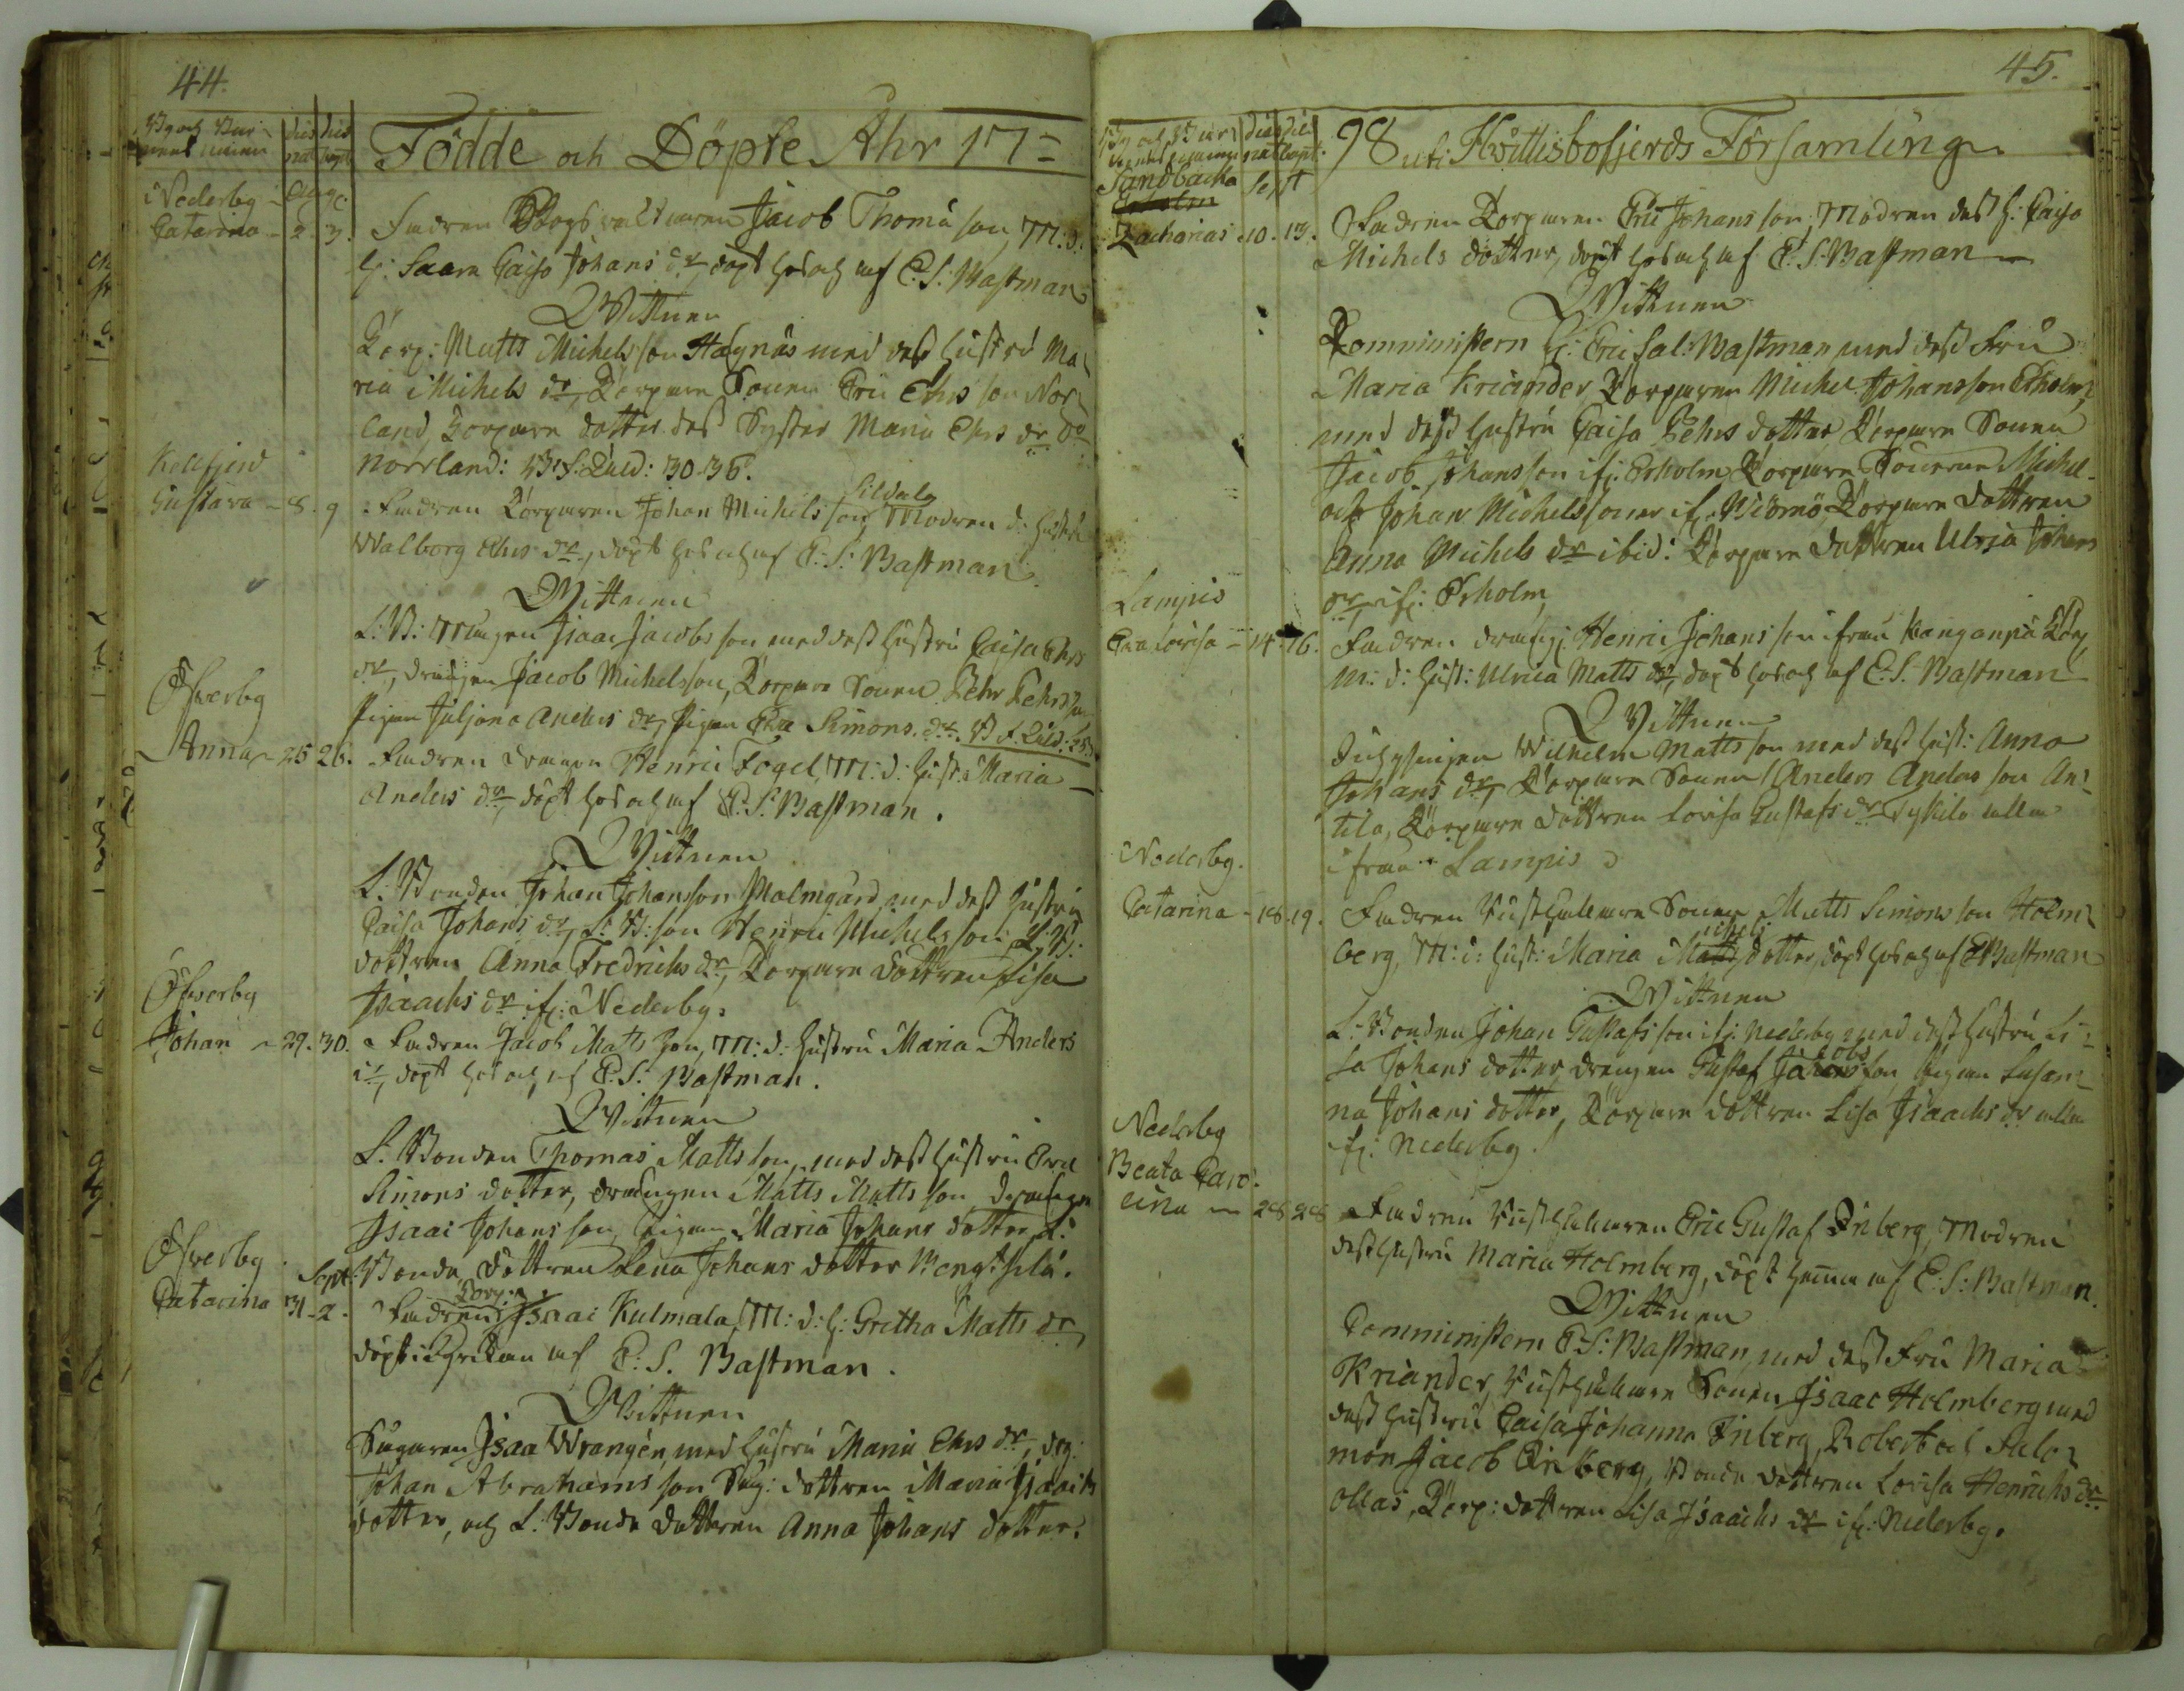 44.
By och Bar-
nens namn
dies nat
dies bapt
Födde och Döpte Åhr 17=
Nederby Aug.
Catarina - 2. 3.
Fadren Skogsvaktaren Jacob Thomæ son, M: d:
H: Saara Caisa Johans dr, döpt hos och af E: S: Bastman
Wittnen
Torp: Matts Michelsson Hagnäs med dess hustru Ma-
ria Michels dr, Torpare Sonen Eric Ehrs son Nor-
land, Torpare dotter dess Syster Maria Ehrs dr
Norrland: V. f. Quid: 30. 36.
Kellfjerd
Gustava - 8. 9
Fadren Torparen Johan Michels son Sildala Modren d: hustru
Walborg Ehrs dr, döpt hos och af E: S: Bastman.
Wittnen
L: B: Mågen Isaac Jacobs son, med dess hustru Caisa Ehrs
dr, drängen Jacob Michelsson, Torpare Sonen Pehr Pehrsson
Pigan Juljana Anders dr, Pigan Eva Simons dr. V f. Quid:
Öfverby
Anna - 25 26.
Fadren drängen Henric Fogel, M: d: hust: Maria
Anders dr, döpt hos och af E: S: Bastman.
Wittnen
L: Bonden Johan Johansson Malmgård, med dess hustru
Caisa Johans dr, L: B: son Henric Michelsson, L: B:
dottren Anna Fredrichs dr, Torpare dottren Lisa
Isaachs dr ifr: Nederby.
Öfverby
Johan - 29. 30.
Fadren Jacob Matts son, M: d: hustru Maria Anders
dr, döpt hos och af E: S: Bastman.
Wittnen
L: Bonden Thomas Matts son, med dess hustru Eva
Simons dotter, drängen Matts Matts son, drängen
Isaac Johans son, Pigan Maria Johans dotter, L:
Bonde Dottren Lena Johans dotter Bengtsila.
Öfverby Sept:
Catarina 31 - 2.
Fadren Torp: Isaac Kulmala, M: d: H: Gretha Matts dr
döpt i Kyrckan af E: S. Bastman.
Wittnen
Sågaren Isaac Wrangén, med hustru Maria Ehrs dr, drg:
Johan Abrahams son, Såg: dottren Maria Isaachs
dotter, och L: Bonde Dottren Anna Johans dotter.
45.
By och Bar-
nens namn
dies nat
dies bapt:
98 uti Hvittisbofjerds Församling
Sandbacka Sept
Zacharias 10. 13.
Fadren Torparen Eric Johans son, Modren dess H: Caisa
Michels dotter, döpt hos och af E: S: Bastman
Wittnen
Comministern H: Eric Sal: Bastman med dess Fru
Maria Kriander, Torparen Michel Johansson Erholm,
med dess hustru Caisa Pehrs dotter, Torpare Sonen
Jacob Johansson ifr: Erholm, Torpare Sönerne Michel
och Johan Michels söner ifr: Wiömö, Torpare dottren
Anna Michels dr ibid: Torpare dottren Ulrica Johans
dr, ifr: Erholm,
Lampis
Eva Lovisa - 14. 16.
Fadren drängen Henric Johans son ifrån Kanganpä Torp,
M: d: hust: Ulrica Matts dr, döpt hos och af E: S. Bastman
Wittnen
Inhysingen Wilhelm Matts son med dess hust: Anna
Johans dr, Torpare Sonen Anders Anders son An-
tila, Torpare dottren Lovisa Gustafs dr Tyskilä alla
ifrån Lampis
Nederby.
Catarina - 18. 19.
Fadren Rusthållare Sonen Matts Simons son Holm-
berg, M: d: hust: Maria Michels dotter, döpt hos och af E Bastman
Wittnen
L: Bonden Johan Gustafs son ifr: Nederby med dess hustru Li-
sa Johans dotter, drengen Gustaf Jacobs son, Pigan Susan-
na Johans dotter, Torpare dottren Lisa Isaachs dr alla
ifr: Nederby.
Nederby
Beata Caro-
lina - 28 28
Fadren Rusthållaren Eric Gustaf Enberg, Modren
dess hustru Maria Holmberg, döpt hemma af E: S: Bastman.
Wittnen
Comministern E: S: Bastman, med dess Fru Maria
Kriander, Rusthållare Sonen Isaac Holmberg med
dess hustru Caisa Johanna Enberg, Robert och Salo-
mon Jacob Enberg, Bonde dottren Lovisa Henrichs dr
Ollas, Torp: dottren Lisa Isaachs dr ifr: Nederby.